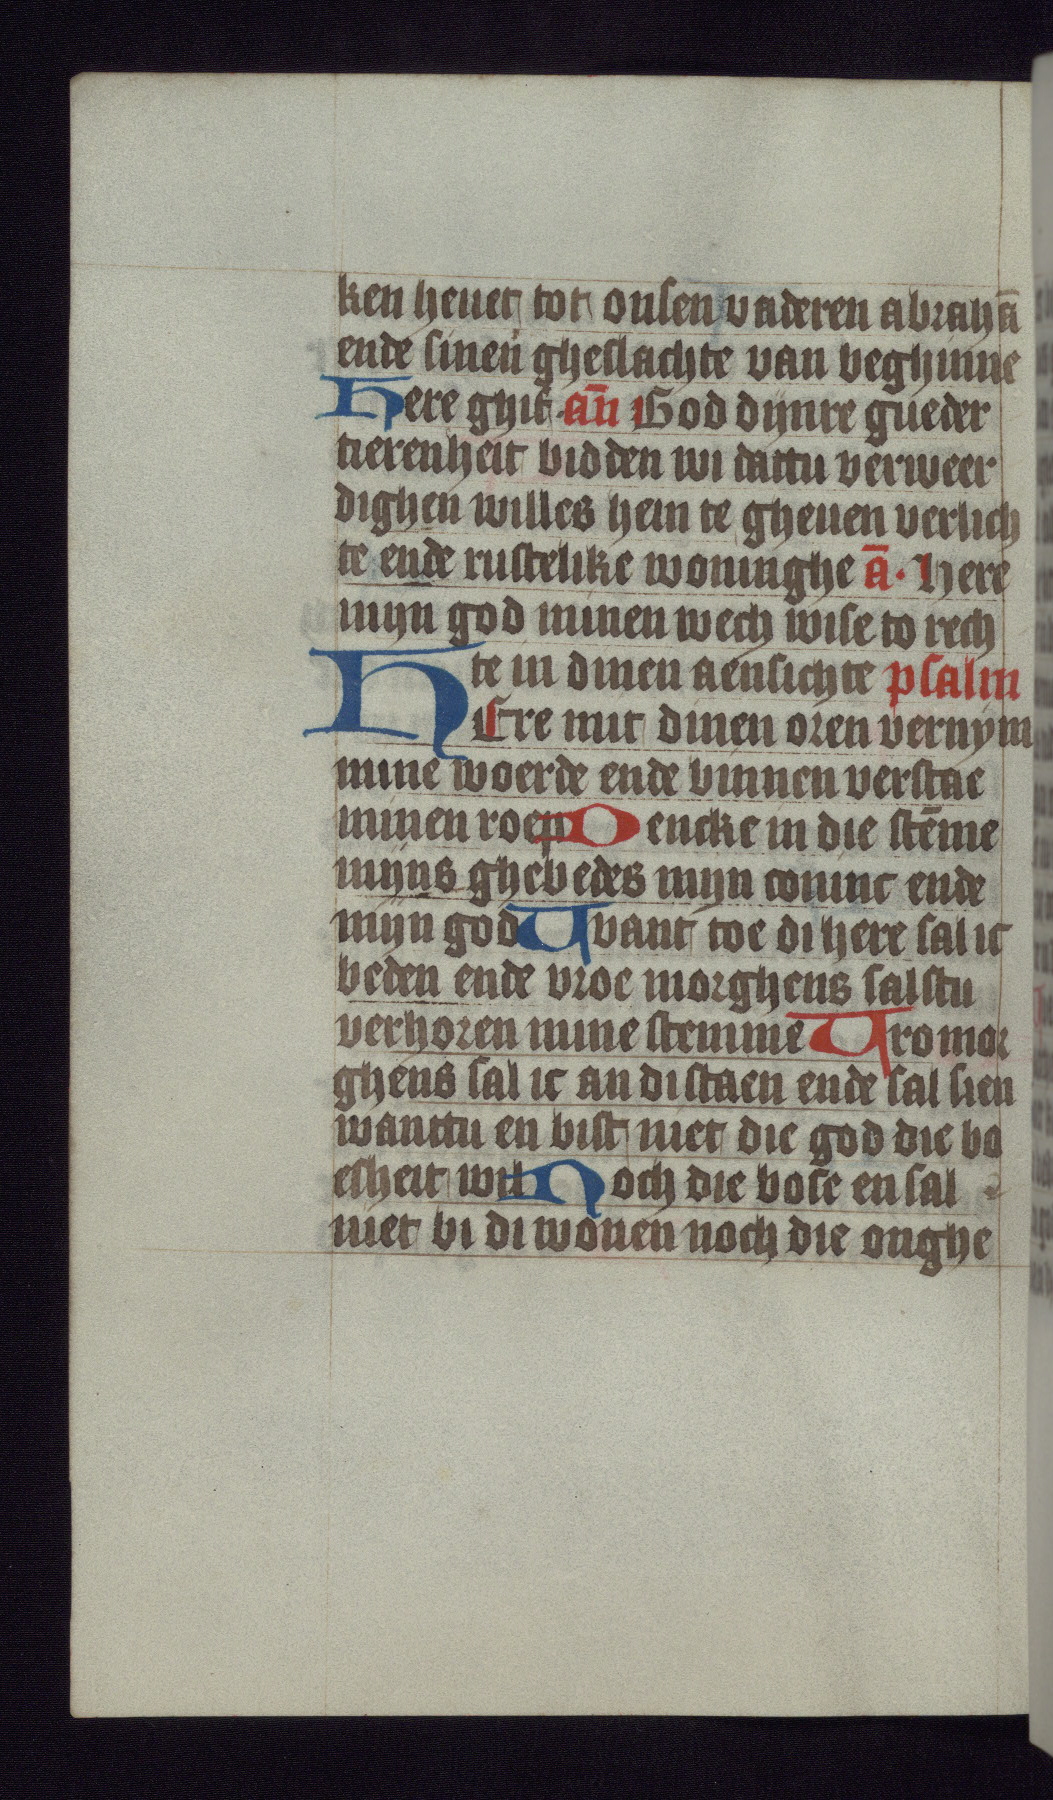 ken heuet tot onsen vaderen abrahā
ende sinen gheslachte van beghinne
Here ghif. an̄ God dijnre gueder
tierenheit bidden wi dattu verweer
dighen willes hem te gheuen verlich
te ende rustelike woninghe ā. Here
mijn god minen wech wise to rech
te in dinen aensichte psalm
HEre mit dinen oren vernym
mine woerde ende binnen verstae
minen roep Dencke in die stēme
mijns ghebedes mijn coninc ende
mijn god Want toe di here sal ic
beden ende vroe morghens salstu
verhoren mine stemme Vro mor
ghens sal ic an di staen ende sal sien
wanttu en bist niet die god die bo
esheit wil Noch die bose en sal
niet bi di wonen noch die onghe